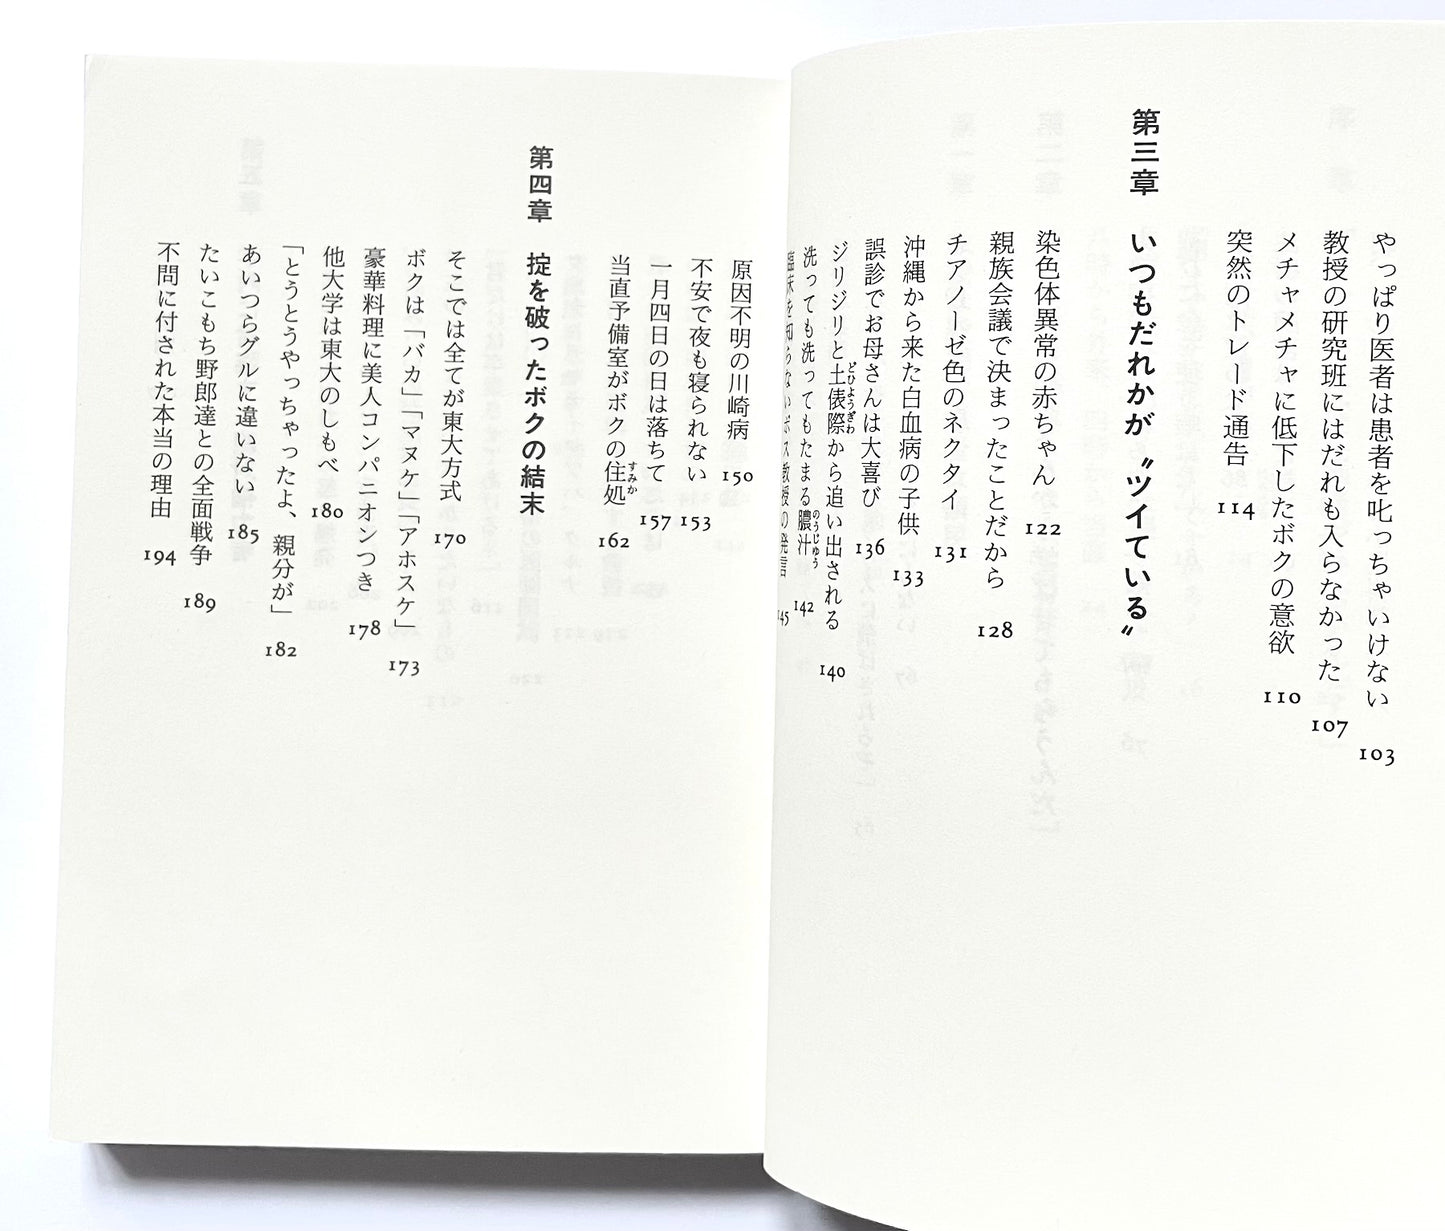 やっぱり医者は患者を叱っちゃいけない 103
教授の研究班にはだれも入らなかった 107
メチャメチャに低下したボクの意欲 110
突然のトレード通告 114
第三章 いつもだれかが〝ツイている〟
染色体異常の赤ちゃん 122
親族会議で決まったことだから 128
チアノーゼ色のネクタイ 131
沖縄から来た白血病の子供 133
誤診でお母さんは大喜び 136
ジリジリと土俵際から追い出される 140
どひょうぎわ
洗っても洗ってもたまる膿汁 142
のうじゅう
臨床を知らないボス教授の発言 145
原因不明の川崎病 150
不安で夜も寝られない 153
一月四日の日は落ちて 157
当直予備室がボクの住処 162
すみか
第四章 掟を破ったボクの結末
そこでは全てが東大方式 170
ボクは「バカ」「マヌケ」「アホスケ」 173
豪華料理に美人コンパニオンつき 178
他大学は東大のしもべ 180
「とうとうやっちゃったよ、親分が」 182
あいつらグルに違いない 185
たいこもち野郎達との全面戦争 189
不問に付された本当の理由 194